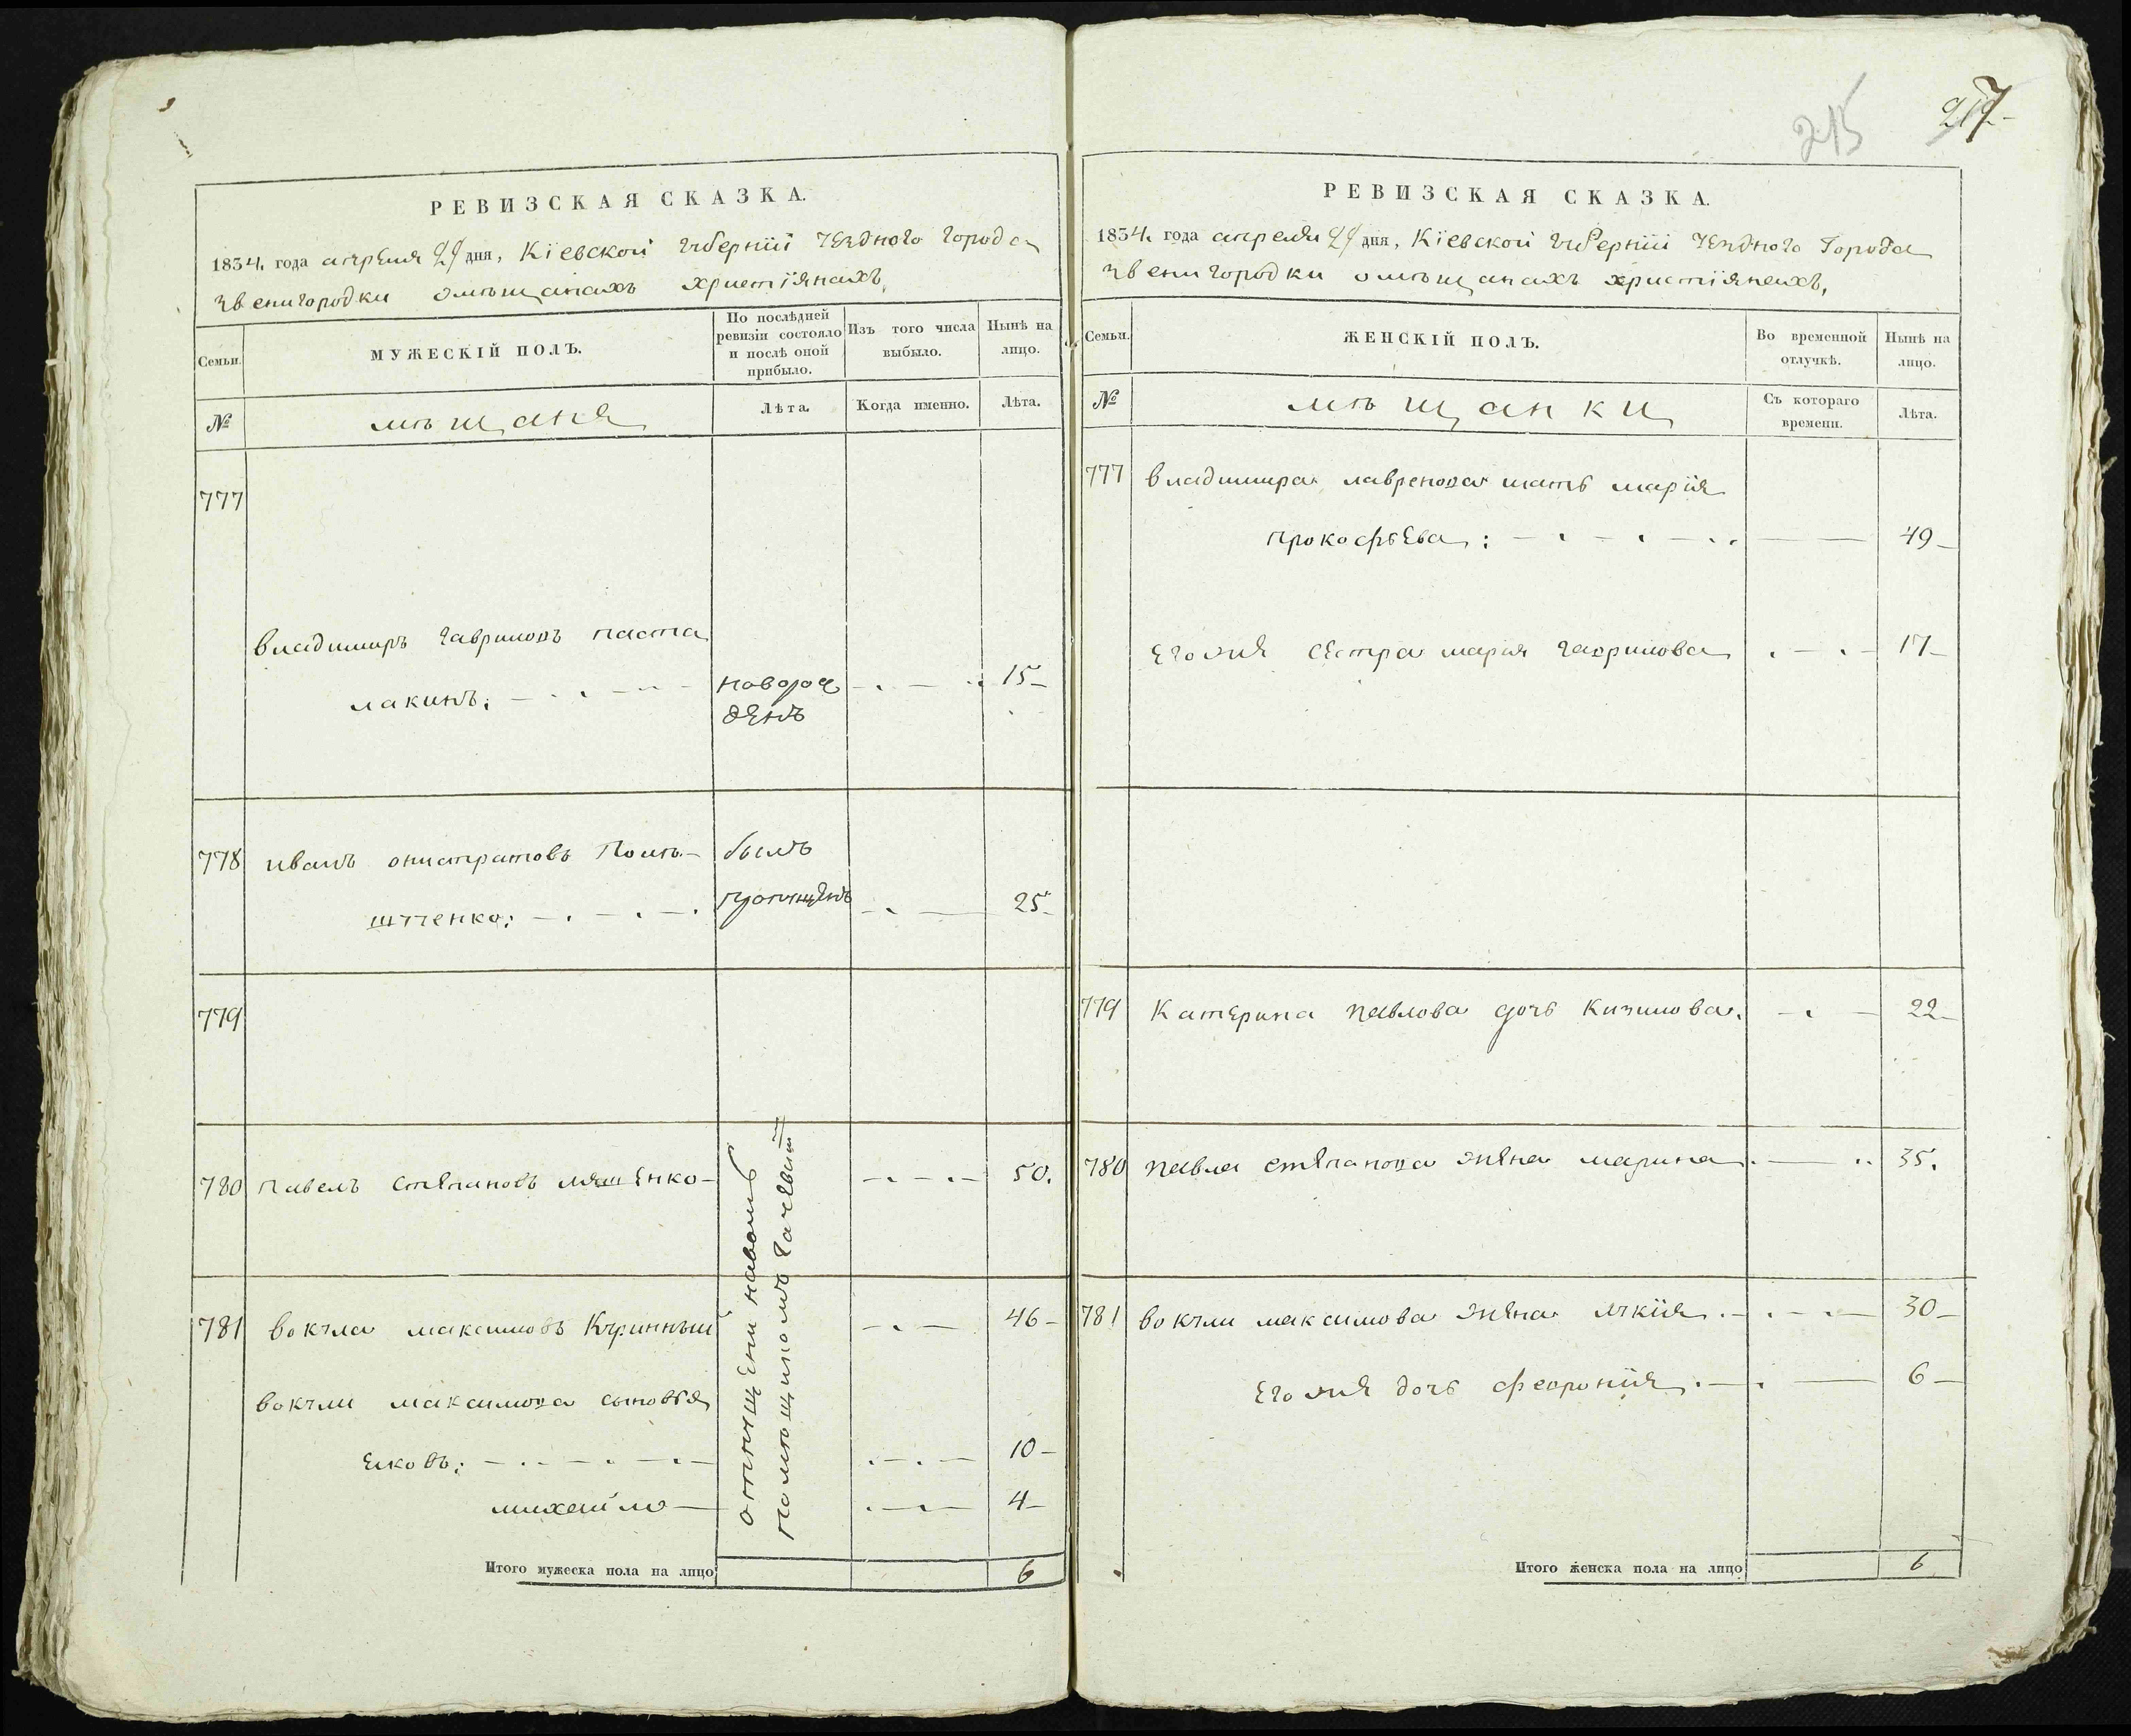 215
217
РЕВИЗСКАЯ СКАЗКА.
1834. года апреля 24 дня, Кіевской губерніи уезднаго города
звенигородки о мѣщанахъ христіянахъ,
Семьи.
МУЖЕСКІЙ ПОЛЪ.
По послѣдней ревизіи состояло и послѣ оной прибыло.
Изъ того числа выбыло.
Нынѣ на лицо.
№
мѣщаня
Лѣта.
Когда именно.
Лѣта.
777
владимиръ гавриловъ паста
лакинъ: новорож 15
денъ
778 иванъ онистратовъ Помѣ- былъ
шченко: пропущенъ 25
779
780 павелъ степановъ ляшенко 50.
781 вокула максимовъ Куринный 46
вокули максимова сыновья
яковъ: 10
михайло 4
отпущени наволю
помѣщикомъ
Итого мужеска пола на лицо 6
РЕВИЗСКАЯ СКАЗКА.
1834. года апреля 24 дня, Кіевской губерніи уезднаго Города
звенигородки о мѣщанахъ христіянахъ,
Семьи.
ЖЕНСКІЙ ПОЛЪ.
Во временной отлучкѣ.
Нынѣ на лицо.
№
мѣщанки
Съ котораго времени.
Лѣта.
777 владимира мать марія
прокофьева: 49
его же сестра марія гаврилова 17
779 Катерина павлова дочь Кизимова. 22
780 павла степанова жена марина 35.
781 вокули максимова жена лукія 30
его же дочь феоронія 6
Итого женска пола на лицо 6